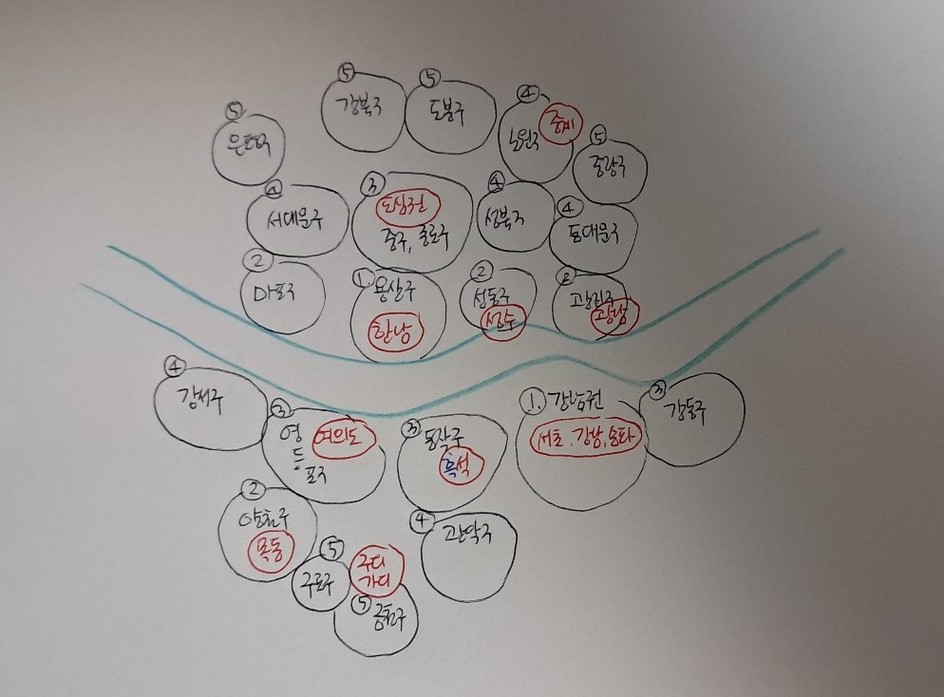 ⑤
은평구
⑤
강북구
⑤
도봉구
④
노원구
중계
⑤
중랑구
④
서대문구
③
도심권
중구, 종로구
④
성북구
④
동대문구
②
마포구
①
용산구
한남
②
성동구
성수
②
광진구
광남
④
강서구
③
영
등
포구
여의도
③
동작구
흑석
①. 강남권
서초. 강남, 송파
③
강동구
②
양천구
목동
⑤
구로구
구디
가디
⑤
금천구
④
관악구